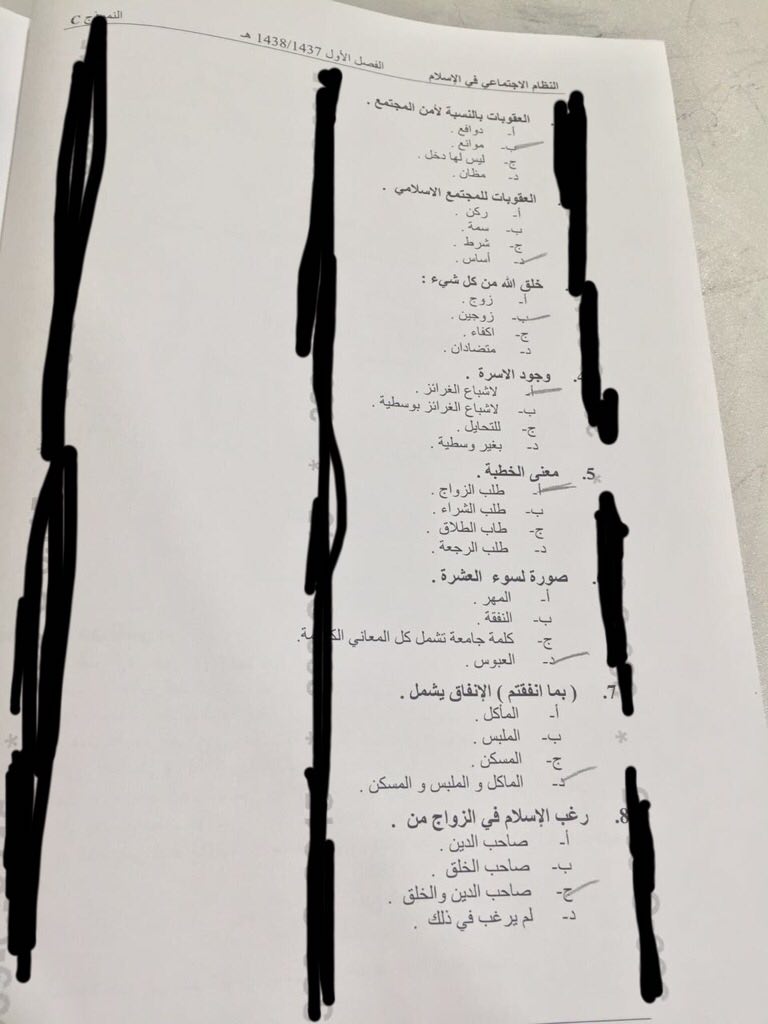 النموذج C
الفصل الأول 1438/1437 هـ
النظام الاجتماعي في الإسلام
العقوبات بالنسبة لأمن المجتمع .
أ- دوافع .
ب- موانع .
ج- ليس لها دخل .
د- مظان .
العقوبات للمجتمع الاسلامي .
أ- ركن .
ب- سمة .
ج- شرط .
د- أساس .
خلق الله من كل شيء :
أ- زوج .
ب- زوجين .
ج- اكفاء .
د- متضادان .
وجود الاسرة .
أ- لاشباع الغرائز .
ب- لاشباع الغرائز بوسطية .
ج- للتحايل .
د- بغير وسطية .
5. معنى الخطبة .
أ- طلب الزواج .
ب- طلب الشراء .
ج- طاب الطلاق .
د- طلب الرجعة .
صورة لسوء العشرة .
أ- المهر .
ب- النفقة .
ج- كلمة جامعة تشمل كل المعاني
د- العبوس .
7. ( بما انفقتم ) الإنفاق يشمل .
أ- المأكل .
ب- الملبس .
ج- المسكن .
د- الماكل و الملبس و المسكن .
8. رغب الإسلام في الزواج من .
أ- صاحب الدين .
ب- صاحب الخلق .
ج- صاحب الدين والخلق .
د- لم يرغب في ذلك .